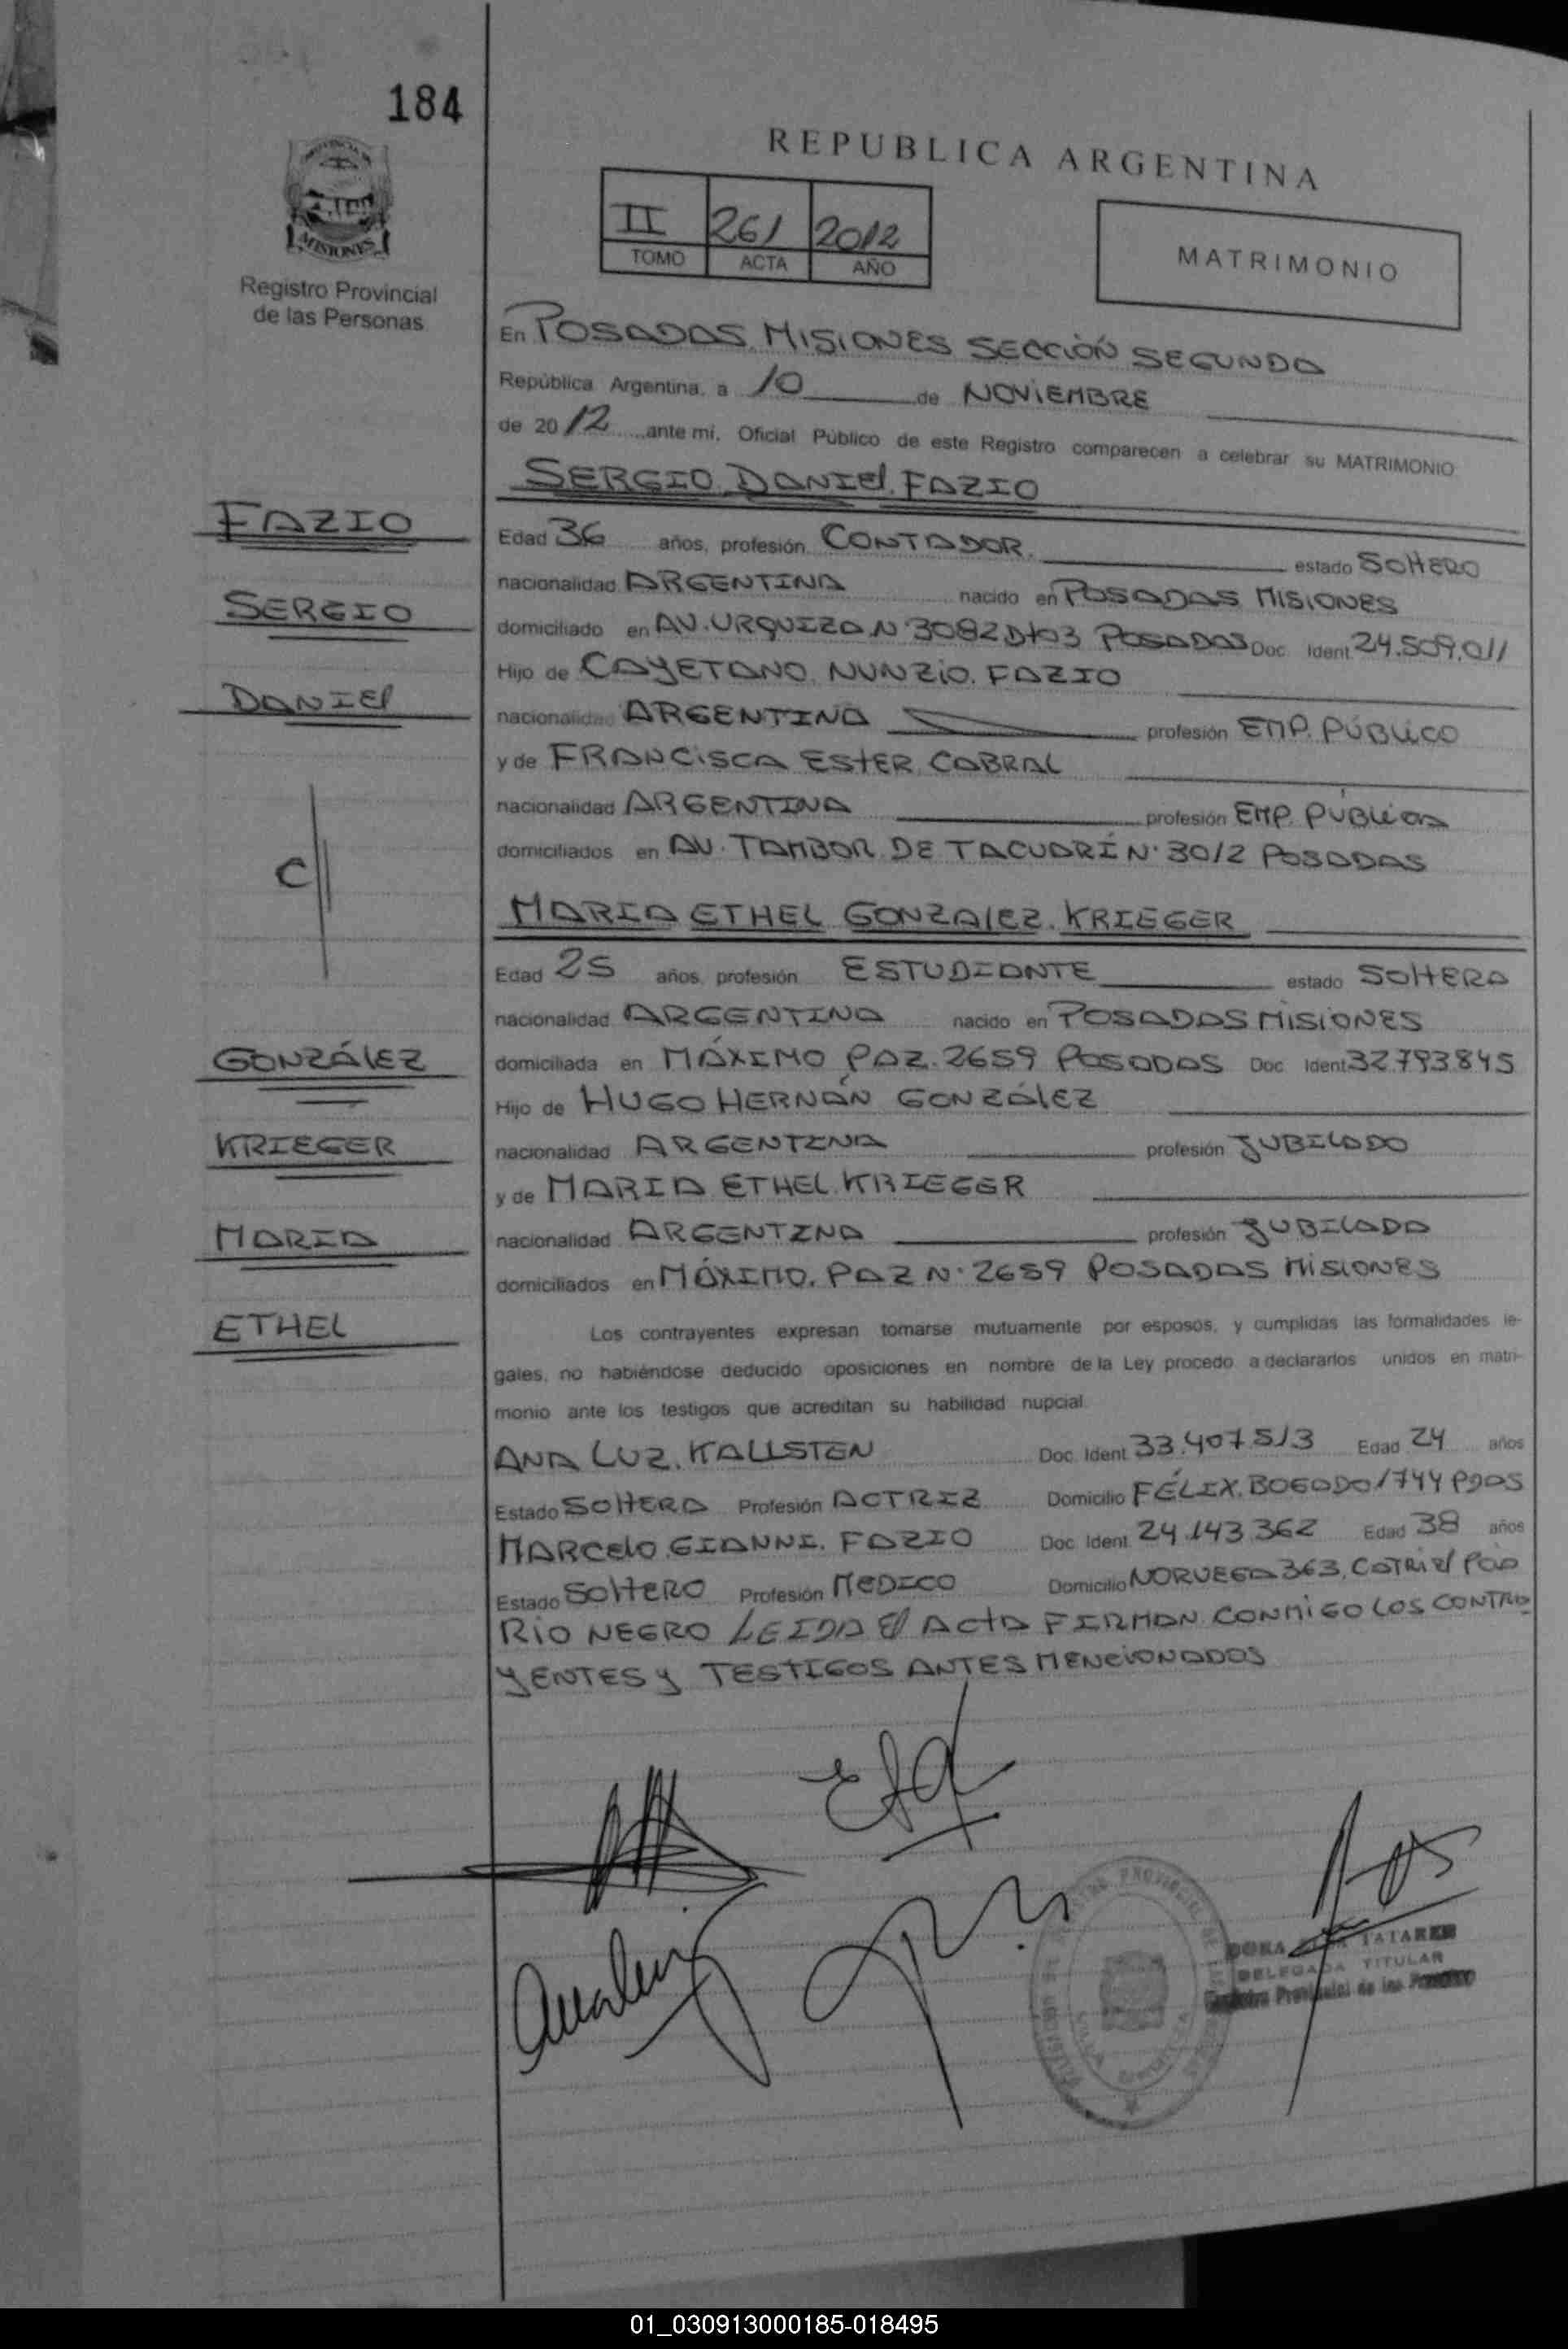 184
MISIONES
Registro Provincial
de las Personas
REPUBLICA ARGENTINA
II 261 2012
TOMO ACTA AÑO
MATRIMONIO
En POSADAS. MISIONES SECCIÓN SEGUNDA
República Argentina, a 10 de NOVIEMBRE
de 2012 ante mí, Oficial Público de este Registro comparecen a celebrar su MATRIMONIO
SERGIO DANIEL FAZIO
FAZIO
Edad 36 años, profesión CONTADOR. estado SOLTERO
nacionalidad ARGENTINA nacido en POSADAS MISIONES
SERGIO
domiciliado en AV. URQUIZA N 3082 Dto3 POSADAS Doc. Ident. 24.509.011
Hijo de CAYETANO. NUNZIO. FAZIO
DANIEL
nacionalidad ARGENTINA profesión EMP. PÚBLICO
y de FRANCISCA ESTER. CABRAL
nacionalidad ARGENTINA profesión EMP. PÚBLICA
domiciliados en AV. TAMBOR DE TACUARÍ N° 3012 POSADAS
C
MARIA ETHEL GONZALEZ. KRIEGER
Edad 25 años, profesión ESTUDIANTE estado SOLTERA
nacionalidad ARGENTINA nacido en POSADAS MISIONES
GONZÁLEZ
domiciliada en MÁXIMO PAZ. 2659 POSADAS Doc. Ident. 32.793.845
Hijo de HUGO HERNÁN GONZÁLEZ
KRIEGER
nacionalidad ARGENTINA profesión JUBILADO
y de MARIA ETHEL. KRIEGER
MARIA
nacionalidad ARGENTINA profesión JUBILADA
domiciliados en MÁXIMO. PAZ N° 2659 POSADAS MISIONES
ETHEL
Los contrayentes expresan tomarse mutuamente por esposos, y cumplidas las formalidades le-
gales, no habiéndose deducido oposiciones en nombre de la Ley procedo a declararlos unidos en matri-
monio ante los testigos que acreditan su habilidad nupcial.
ANA LUZ. KALLSTEN Doc. Ident. 33.407.513 Edad 24 años
Estado SOLTERA Profesión ACTRIZ Domicilio FÉLIX. BOGADO 1744 Pdas
MARCELO. GIANNI. FAZIO Doc. Ident. 24.143.362 Edad 38 años
Estado SOLTERO Profesión MEDICO Domicilio NORUEGA 363, CATRIEL Pcia
RIO NEGRO LEIDA El ACTA FIRMAN CONMIGO LOS CONTRA
YENTES y TESTIGOS ANTES MENCIONADOS
TATAREN
DELEGADA TITULAR
Registro Provincial de las Personas
01_030913000185-018495